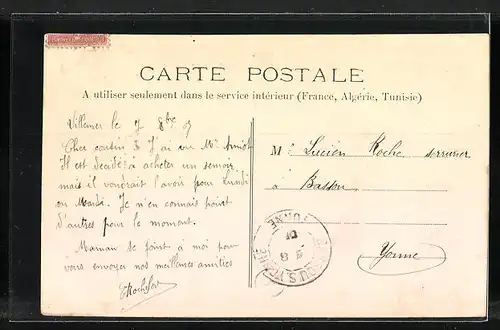 CARTE POSTALE
A utiliser seulement dans le service intérieur (France, Algérie, Tunisie)
Villemer le 7 8bre 07
Cher cousin J'ai vu Mr
Il est decidé à acheter un semoir
mais il voudrait l'avoir pour Lundi
ou Mardi. Je n'en connais point
d'autres pour le moment.
Maman se joint à moi pour
vous envoyer nos meilleures amitiés
ERochefort
M. Lucien Roche serrurier
à Bassou
Yonne
YONNE